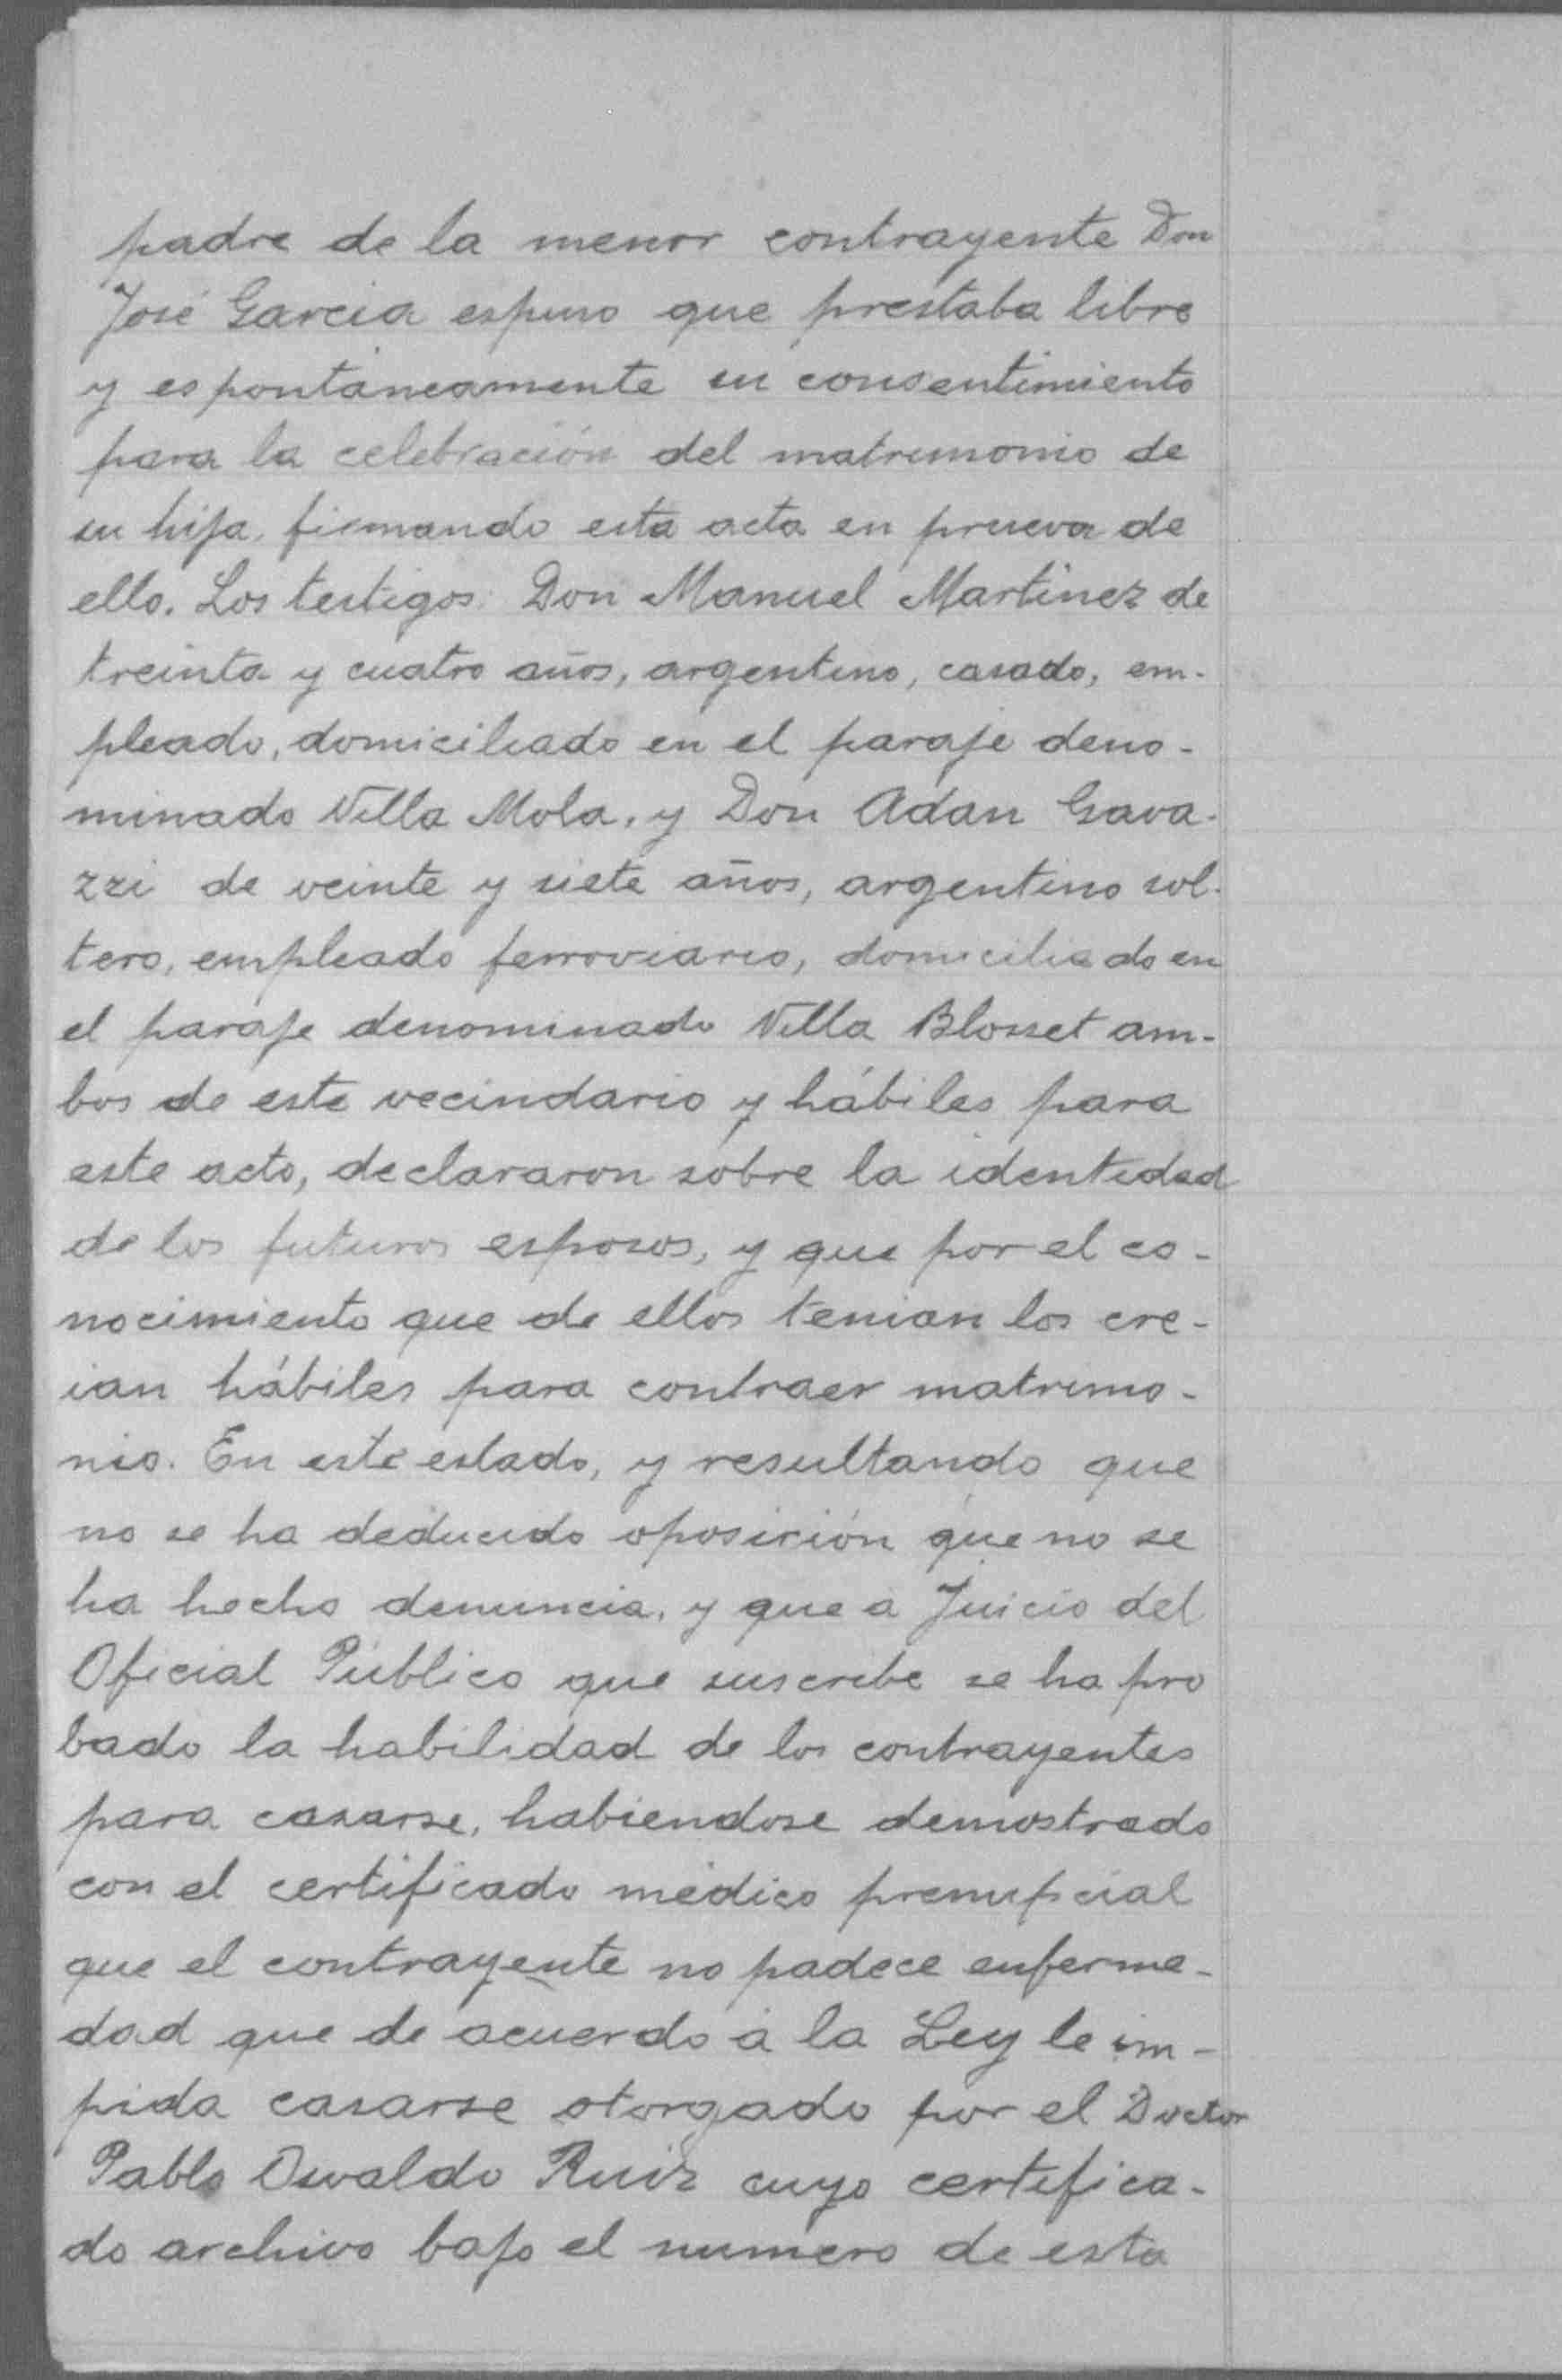 padre de la menor contrayente Don
José Garcia espuso que prestaba libre
y espontáneamente su consentimiento
para la celebración del matrimonio de
su hija, firmando esta acta en prueva de
ello. Los testigos: Don Manuel Martinez de
treinta y cuatro años, argentino, casado, em-
pleado, domiciliado en el paraje deno-
minado Villa Mola, y Don Adan Gava-
zzi de veinte y siete años, argentino sol-
tero, empleado ferroviario, domiciliado en
el paraje denominado Villa Blosset am-
bos de este vecindario y hábiles para
este acto, declararon sobre la identidad
de los futuros esposos, y que por el co-
nocimiento que de ellos tenian los cre-
ian hábiles para contraer matrimo-
nio. En este estado, y resultando que
no se ha deducido oposición que no se
ha hecho denuncia, y que a Juicio del
Oficial Público que suscribe se ha pro
bado la habilidad de los contrayentes
para casarse, habiendose demostrado
con el certificado médico prenupcial
que el contrayente no padece enferme-
dad que de acuerdo á la Ley le im-
pida casarse otorgado por el Doctor
Pablo Osvaldo Ruiz cuyo certifica-
do archivo bajo el numero de esta